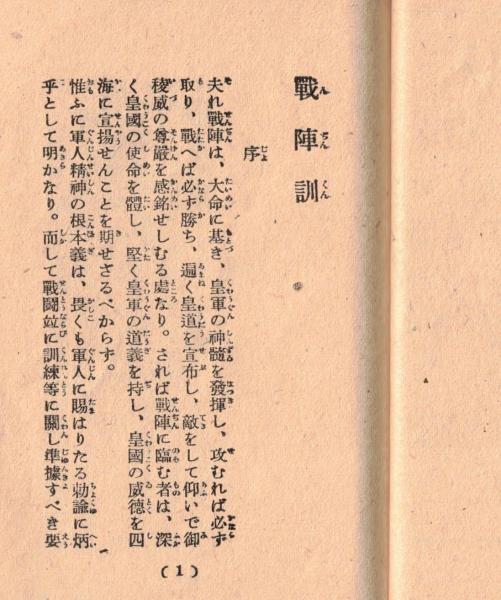 戰陣訓
序
夫れ戰陣は、大命に基き、皇軍の神髓を發揮し、攻むれば必ず
取り、戰へば必ず勝ち、遍く皇道を宣布し、敵をして仰いで御
稜威の尊嚴を感銘せしむる處なり。されば戰陣に臨む者は、深
く皇國の使命を體し、堅く皇軍の道義を持し、皇國の威德を四
海に宣揚せんことを期せざるべからず。
惟ふに軍人精神の根本義は、畏くも軍人に賜はりたる勅諭に炳
乎として明かなり。而して戰鬪竝に訓練等に關し準據すべき要
(1)